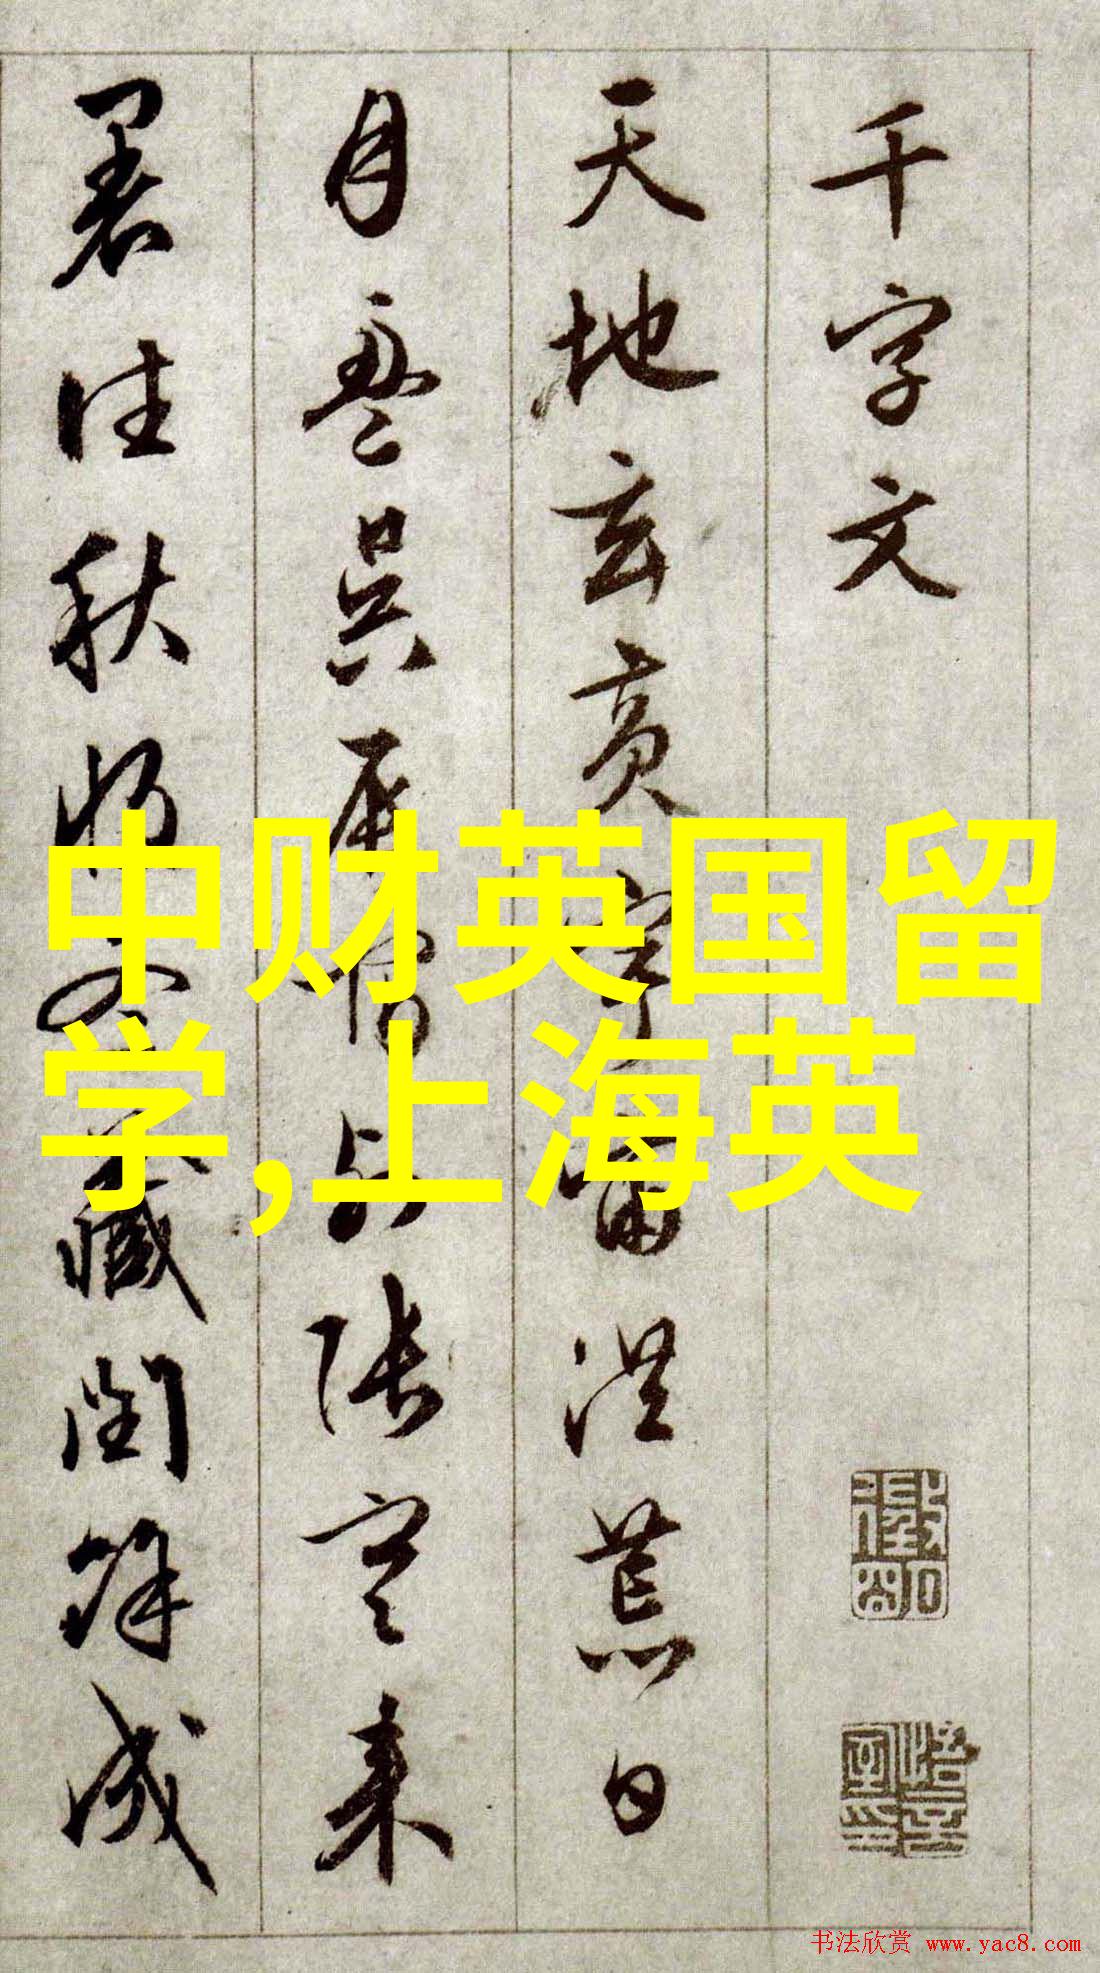 千字文
天地玄黃宇宙洪荒日
月盈昃辰宿列張寒来
暑往秋收冬藏閏餘成
中财英国留
学,上海英
书法欣赏 www.yac8.com